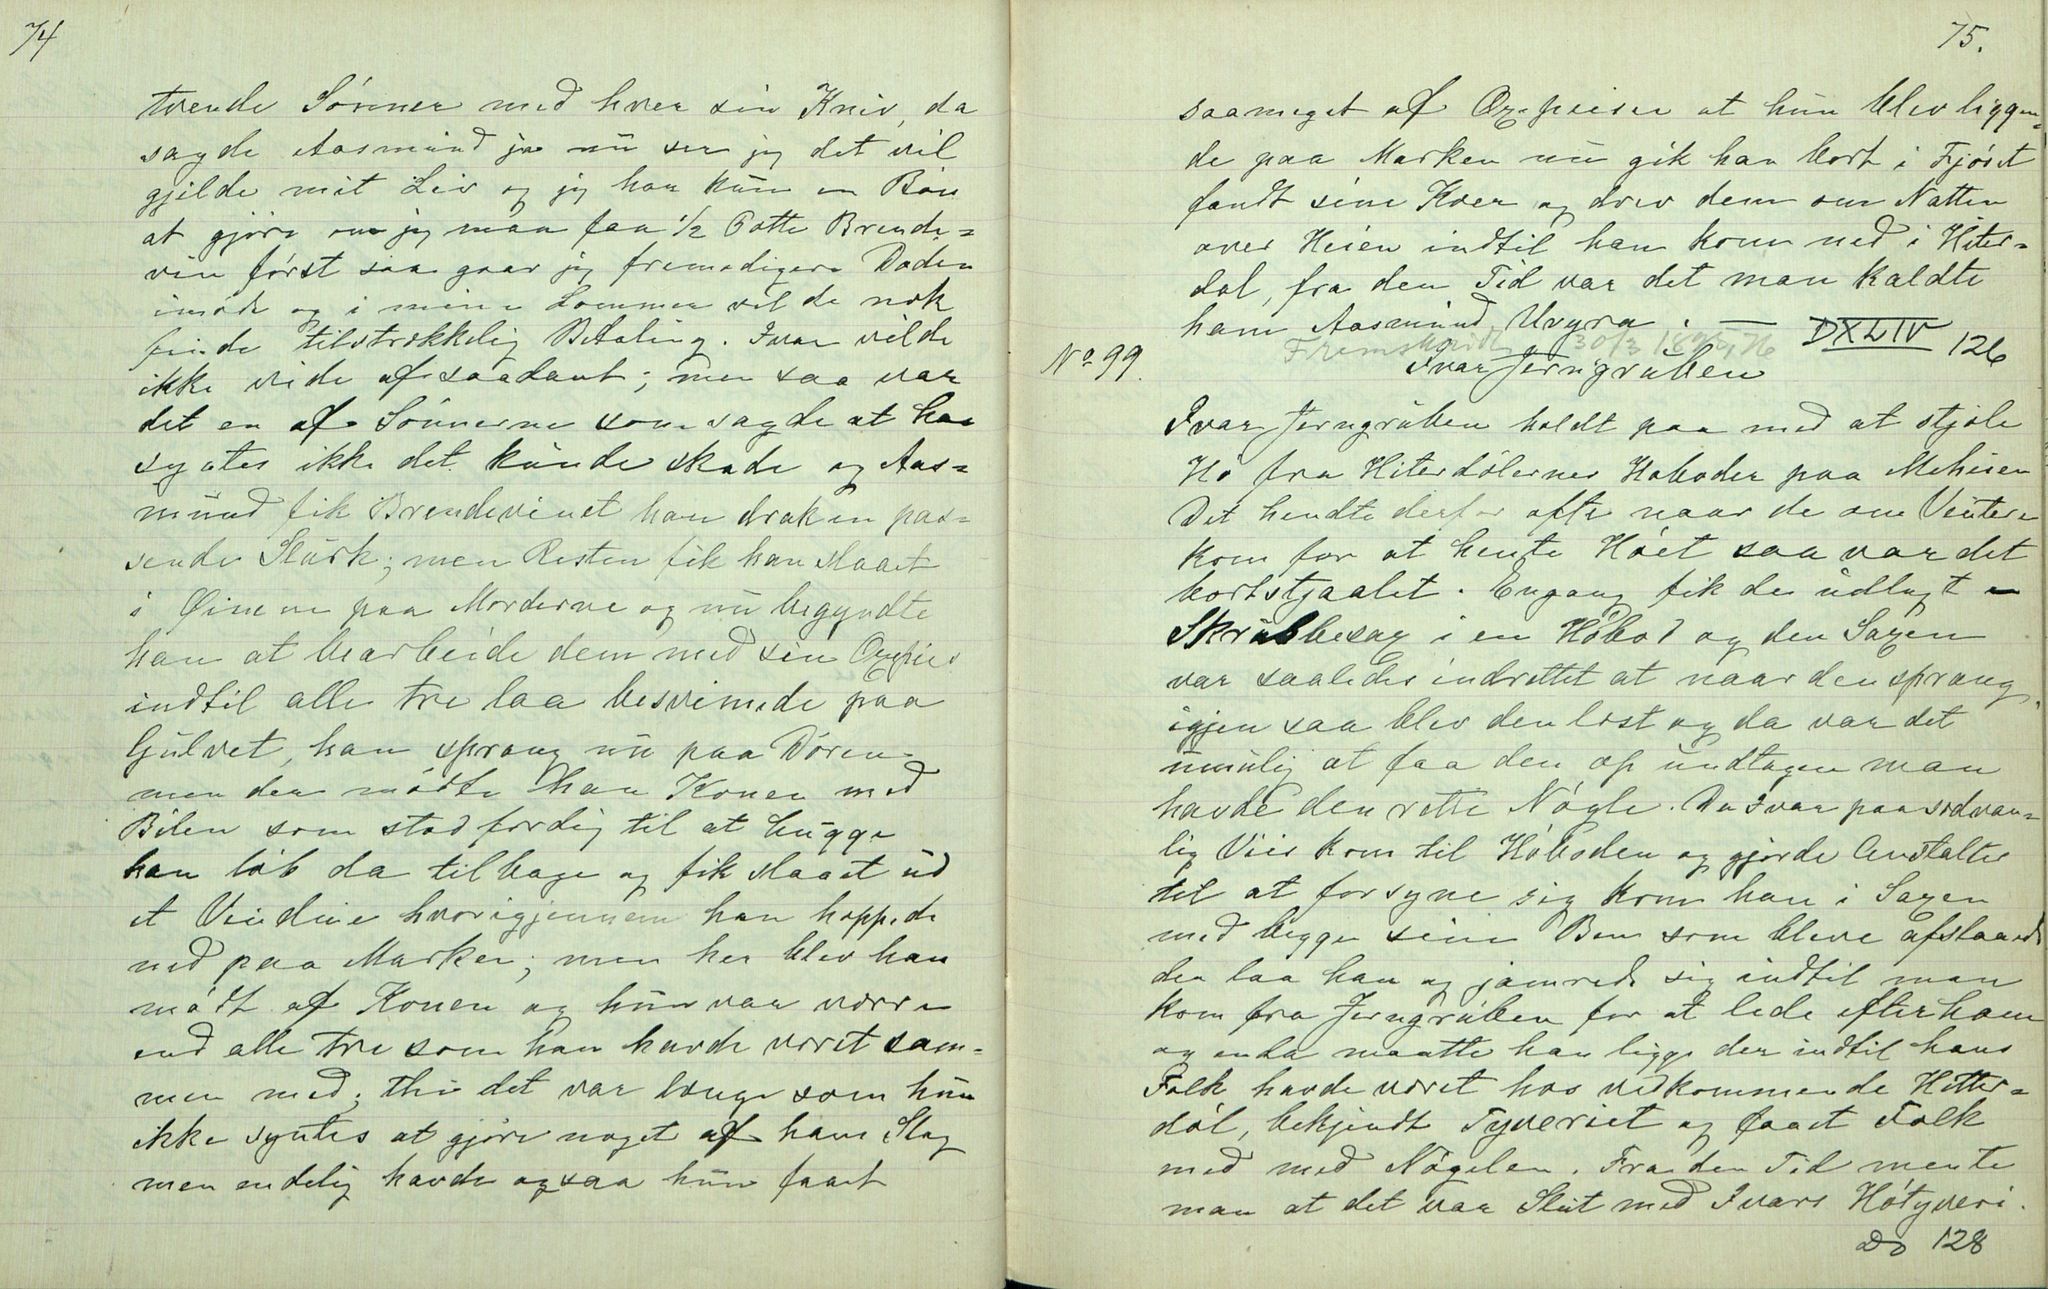 74
tvende Sönner med hver sin Kniv, da
sagde Aasmund ja nu ser jeg det vil
gjelde mit Liv og jeg har kun en Bön
at gjöre om jeg maa faa 1/2 Potte Brende=
vin först saa gaar jeg fremodigere Döden
imöde og i mine Lommer vil de nok
finde tilstrekkelig Betaling. Ivar vilde
ikke vide af saadant; men saa var
det en af Sönnerne som sagde at han
syntes ikke det kunde skade og Aas=
mund fik Brendevinet han drak en pas=
sende Slurk; men Resten fik han slaaet
i Öinene paa Morderne og nu begyndte
han at bearbeide dem med sin Oxepies
indtil alle tre laa besvimede paa
Gulvet, han sprang nu paa Dören
men der mödte han Konen med
Bilen som stod ferdig til at hugge
han löb da tilbage og fik slaaet ud
et Vindue hvorigjennem han hoppede
ned paa Marken; men her blev han
mödt af Konen og hun var verre
end alle tre som han havde veret sam=
men med; thi det var lenge som hun
ikke syntes at gjöre noget af hans Slag
men endelig havde ogsaa hun faaet
75.
saameget af Oxepeisen at hun blev liggen=
de paa Marken nu gik han bort i Fjöset
fandt sine Köer og drev dem om Natten
over Heien indtil han kom ned i Hiter=
dal, fra den Tid var det man kaldte
ham Aasmund Uvyra. —
Fremskridt 30/3 1875, 76
DXLIV 126
No 99.
Ivar Jerngruben
Ivar Jerngruben holdt paa med at stjele
Hö fra Hiterdölernes Höboder paa Meheien
Det hendte derfor ofte naar de om Vintern
kom for at hente Höet saa var det
bortstjaalet. Engang fik de udlagt en
Skrubbesax i en Höbod og den Saxen
var saaledes indrettet at naar den sprang
igjen saa blev den lest og da var det
umulig at faa den op undtagen man
havde den rette Nögle. Da Ivar paa sedvan=
lig Viis kom til Höboden og gjorde Anstalter
til at forsyne sig kom han i Saxen
med begge sine Ben som bleve afslaaede
der laa han og jamrede sig indtil man
kom fra Jerngruben for at lede efter ham
og enda maatte han ligge der indtil hans
Folk havde veret hos vedkommende Hitter=
döl, bekjendt Tyveriet og faaet Folk
med med Nögelen. Fra den Tid mente
man at det var Slut med Ivars Hötyveri.
Do 128